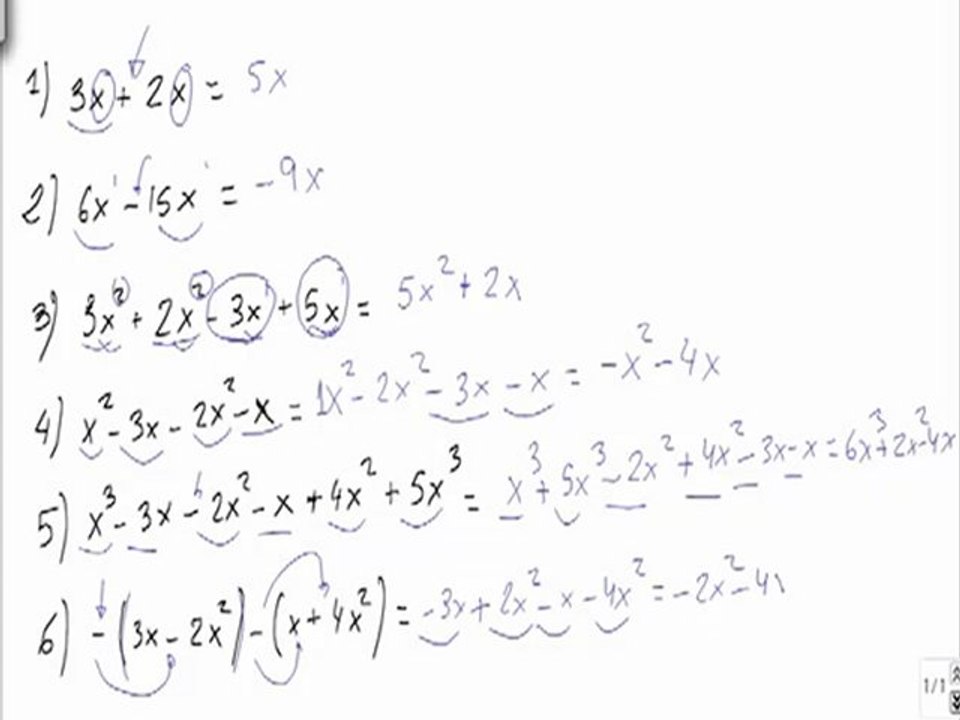 1) 3x + 2x = 5x
2) 6x¹ - 15x¹ = -9x
3) 3x² + 2x² - 3x + 5x = 5x² + 2x
4) x² - 3x - 2x² - x = 1x² - 2x² - 3x - x = -x² - 4x
5) x³ - 3x - 2x² - x + 4x² + 5x³ = x³ + 5x³ - 2x² + 4x² - 3x - x = 6x³ + 2x² - 4x
6) -(3x - 2x²) - (x + 4x²) = -3x + 2x² - x - 4x² = -2x² - 4x
1/1